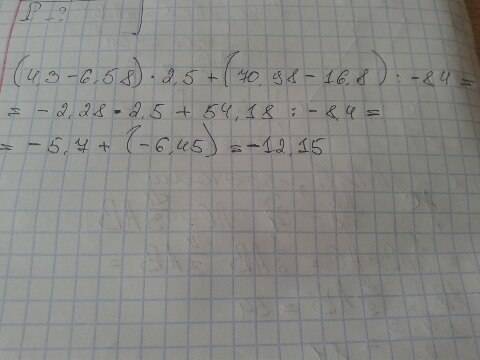 (4,3-6,58)·2,5+(70,98-16,8):-8,4=
=-2,28·2,5+54,18:-8,4=
=-5,7+(-6,45)=-12,15